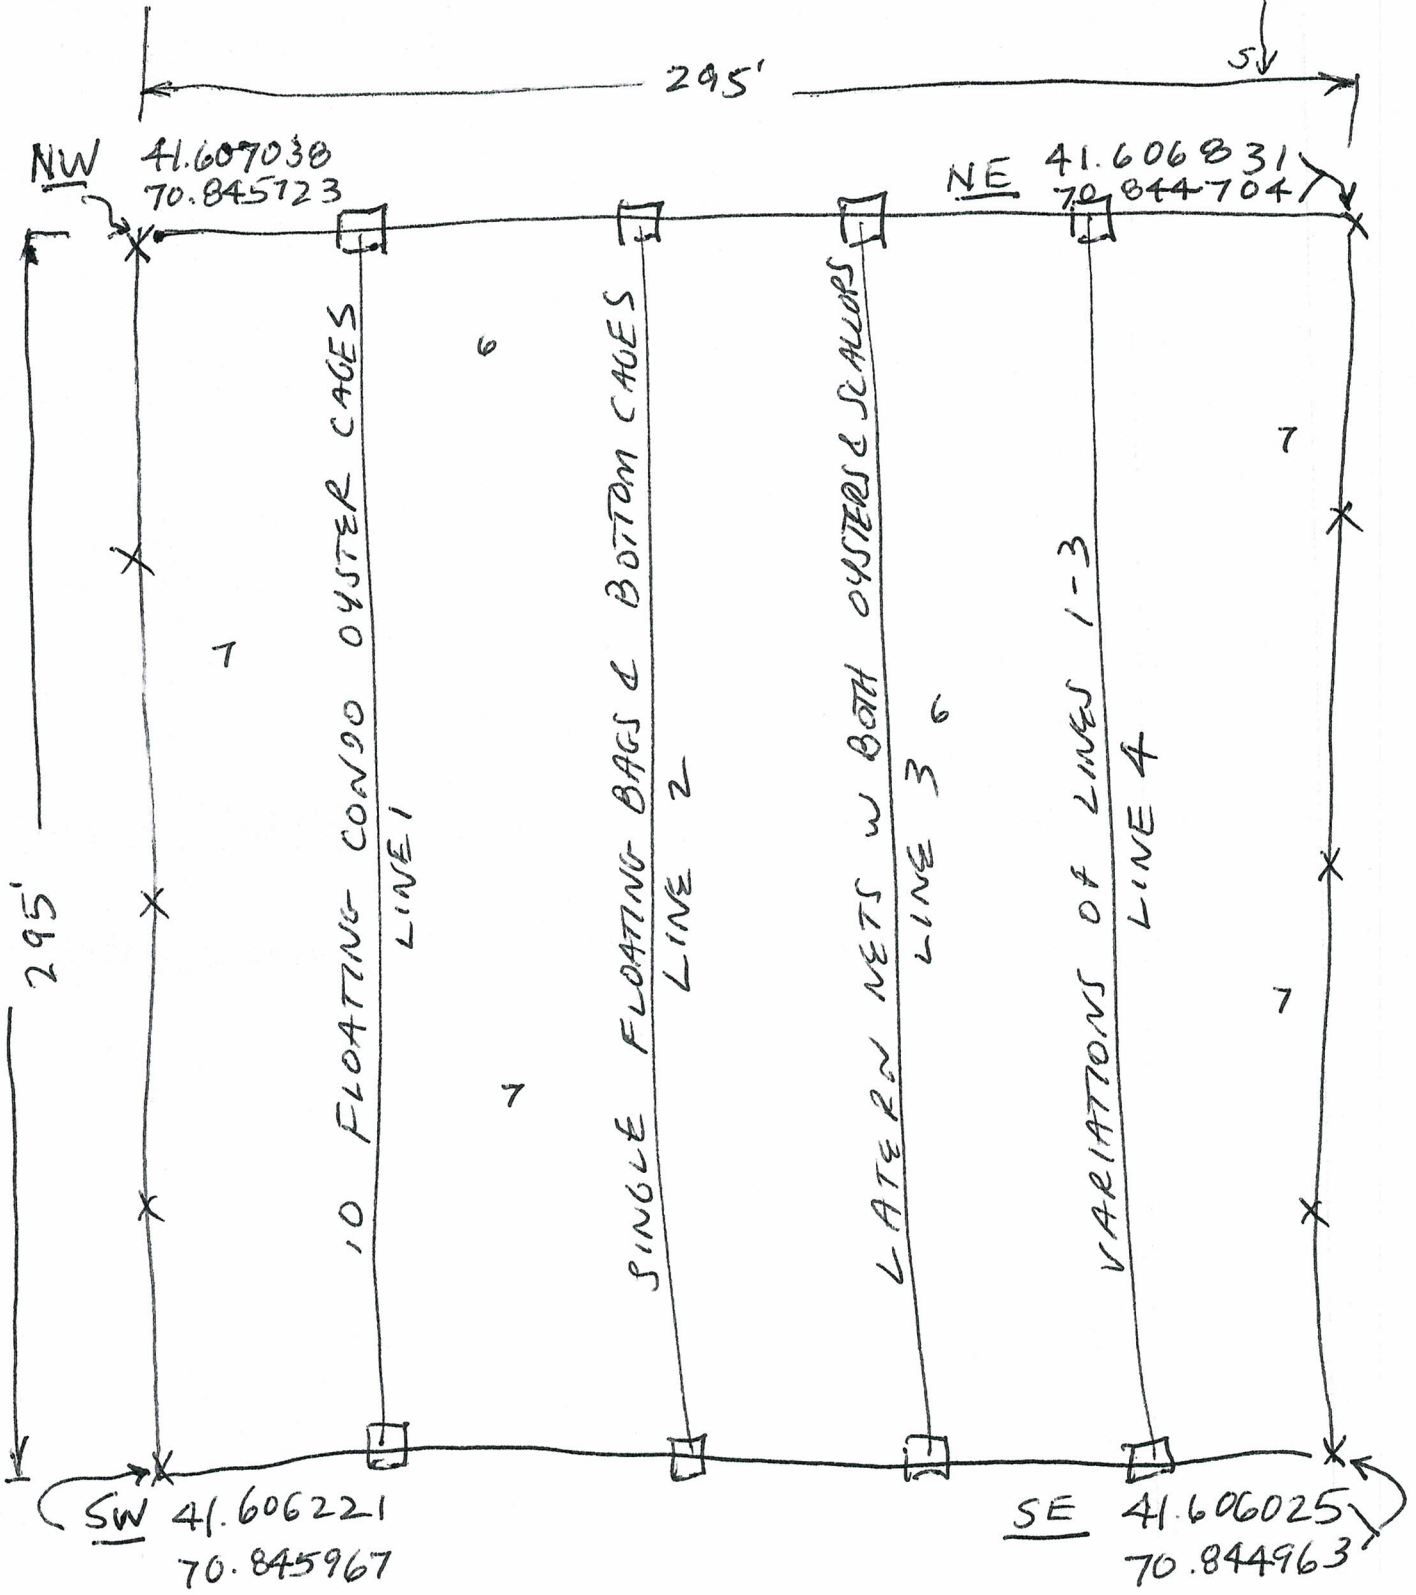 295'
5
NW 41.607038
70.845723
NE 41.606831
70.844704
295'
10 FLOATING CONDO OYSTER CAGES
LINE 1
SINGLE FLOATING BAGS & BOTTOM CAGES
LINE 2
LATERN NETS W BOTH OYSTERS & SCALLOPS
LINE 3
VARIATIONS OF LINES 1-3
LINE 4
6
7
7
6
7
7
SW 41.606221
70.845967
SE 41.606025
70.844963